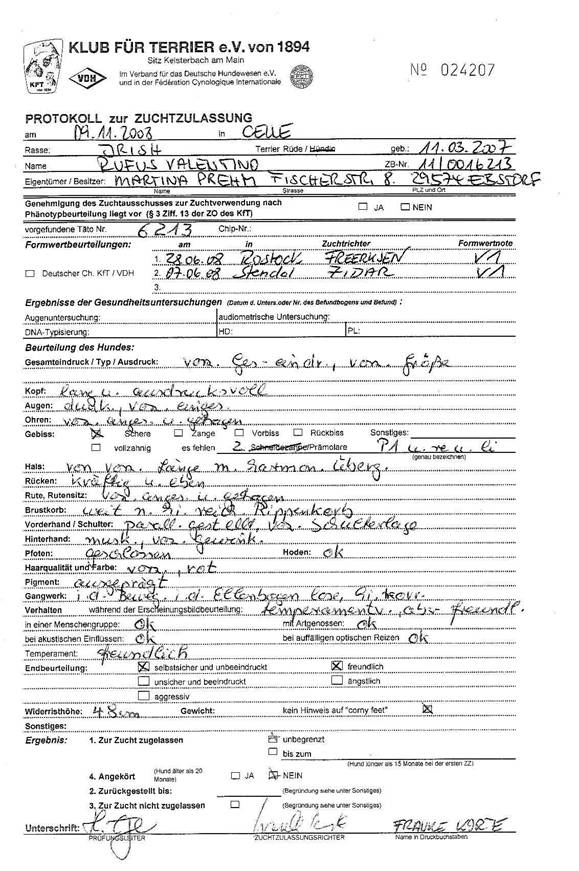 KLUB FÜR TERRIER e.V. von 1894
Sitz Kelsterbach am Main
KFT
VDH
Im Verband für das Deutsche Hundewesen e.V.
und in der Fédération Cynologique Internationale
Nº 024207
PROTOKOLL zur ZUCHTZULASSUNG
am 09.11.2008 in CELLE
Rasse: IRISH Terrier Rüde / Hündin geb.: 11.03.2007
Name RUFUS VALENTINO ZB-Nr. 11/0016213
Eigentümer / Besitzer: MARTINA PREHM FISCHERSTR. 8. 29574 EBSTORF
Name Strasse PLZ und Ort
Genehmigung des Zuchtausschusses zur Zuchtverwendung nach
Phänotypbeurteilung liegt vor (§ 3 Ziff. 13 der ZO des KfT) JA NEIN
vorgefundene Täto Nr. 6213 Chip-Nr.:
Formwertbeurteilungen: am in Zuchtrichter Formwertnote
1. 28.06.08 Rostock FREERKSEN V1
Deutscher Ch. KfT / VDH 2. 07.06.08 Stendal ZIDAR V1
3.
Ergebnisse der Gesundheitsuntersuchungen (Datum d. Unters.oder Nr. des Befundbogens und Befund) :
Augenuntersuchung: audiometrische Untersuchung:
DNA-Typisierung: HD: PL:
Beurteilung des Hundes:
Gesamteindruck / Typ / Ausdruck: vorz. Ges-eindr., vorz. Größe
Kopf: lang u. ausdrucksvoll
Augen: dunkel, vorz. einges.
Ohren: vorz. anges. u. getragen
Gebiss: Schere Zange Vorbiss Rückbiss Sonstiges:
vollzahnig es fehlen 2 Schneidezähne/Prämolare P1 u. re u. li
(genau bezeichnen)
Hals: von vorz. Länge m. harmon. Überg.
Rücken: kräftig u. eben
Rute, Rutensitz: vorz. anges. u. getragen
Brustkorb: weit n. hi. reich. Rippenkorb
Vorderhand / Schulter: parall. gestellt, vorz. Schulterlage
Hinterhand: musk., vorz. gewink.
Pfoten: geschlossen Hoden: ok
Haarqualität und Farbe: vorz., rot
Pigment: ausgeprägt
Gangwerk: i.d. Beweg. i.d. Ellenbogen lose, hi. korr.
Verhalten während der Erscheinungsbildbeurteilung: temperamentv., abs. freundl.
in einer Menschengruppe: ok mit Artgenossen: ok
bei akustischen Einflüssen: ok bei auffälligen optischen Reizen ok
Temperament: freundlich
Endbeurteilung: selbstsicher und unbeeindruckt freundlich
unsicher und beeindruckt ängstlich
aggressiv
Widerristhöhe: 48cm Gewicht: kein Hinweis auf "corny feet"
Sonstiges:
Ergebnis: 1. Zur Zucht zugelassen unbegrenzt
bis zum
(Hund jünger als 15 Monate bei der ersten ZZ)
4. Angekört (Hund älter als 20 Monate) JA NEIN
2. Zurückgestellt bis: (Begründung siehe unter Sonstiges)
3. Zur Zucht nicht zugelassen (Begründung siehe unter Sonstiges)
Unterschrift: FRAUKE
PRÜFUNGSLEITER ZUCHTZULASSUNGSRICHTER Name in Druckbuchstaben